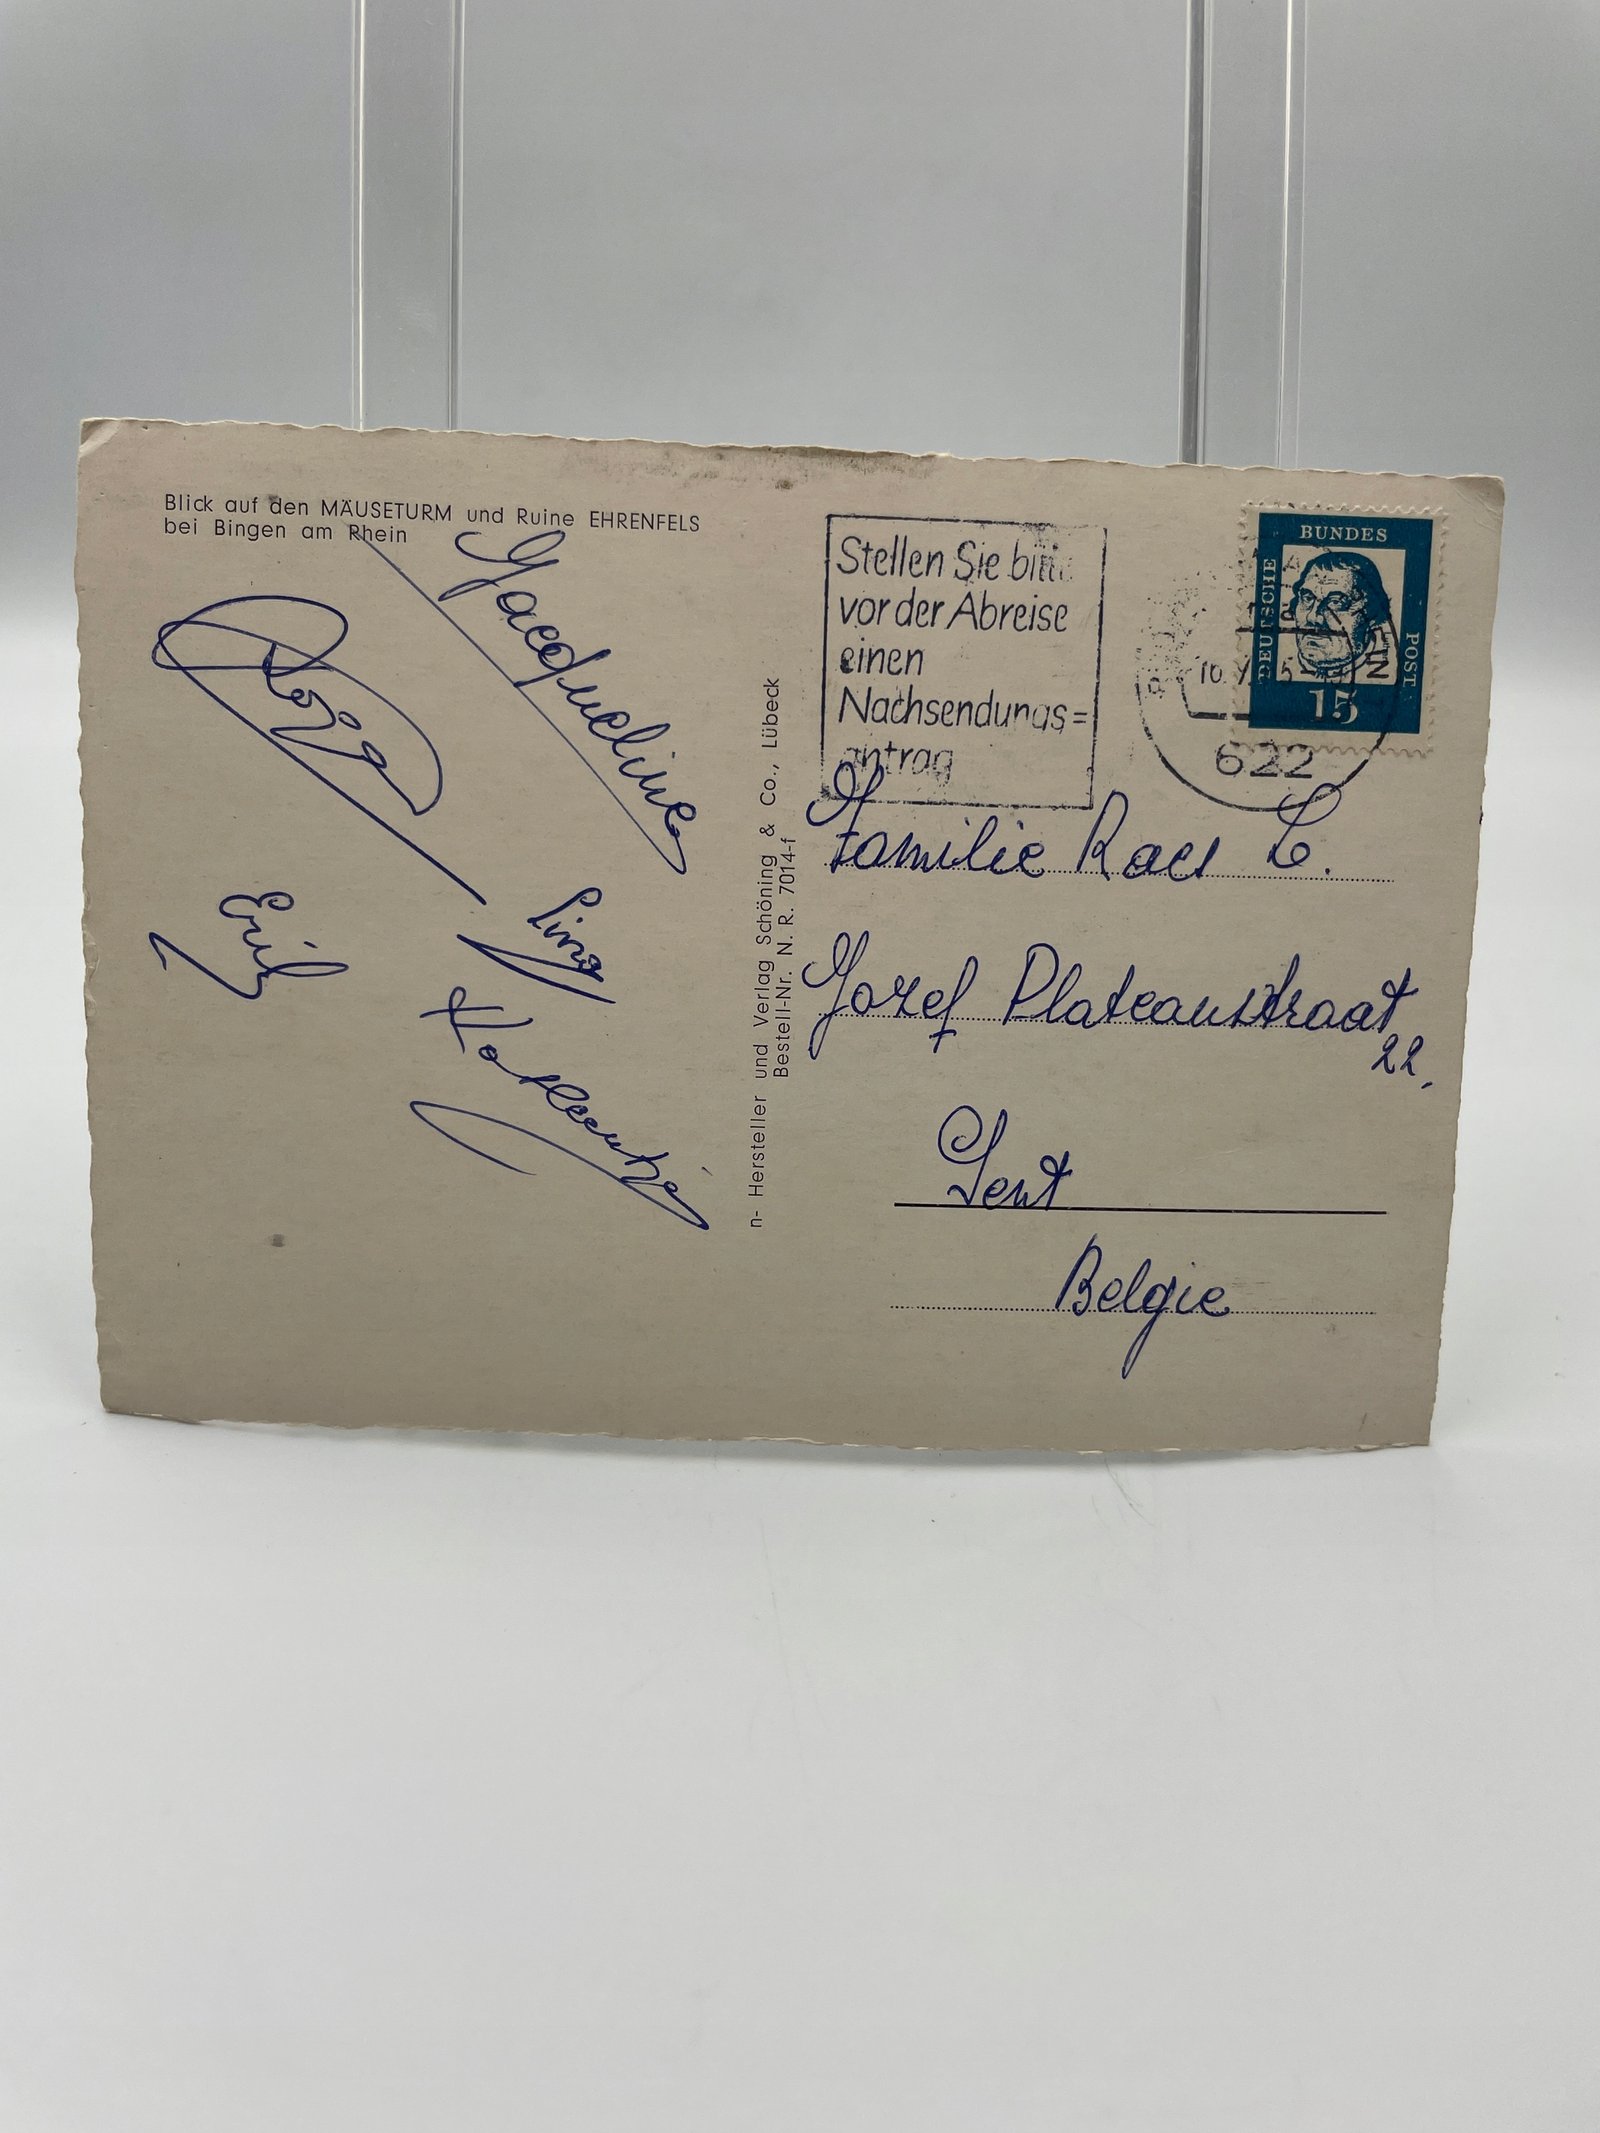 Blick auf den MÄUSETURM und Ruine EHRENFELS
bei Bingen am Rhein
Jacqueline
Erik
Stellen Sie bitte
vor der Abreise
einen
Nachsendungs=
antrag
DEUTSCHE
BUNDES
POST
15
622
Familie Raes L.
Jozef Plateaustraat
22.
Gent
Belgie
n- Hersteller und Verlag Schöning & Co., Lübeck
Bestell-Nr. N. R. 7014-f